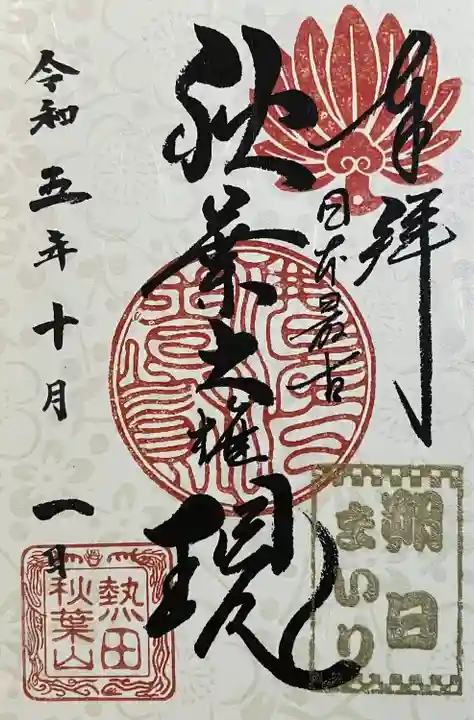 奉拝
日本最古
秋葉大権現
令和五年十月一日
朔日
まいり
熱田
秋葉山